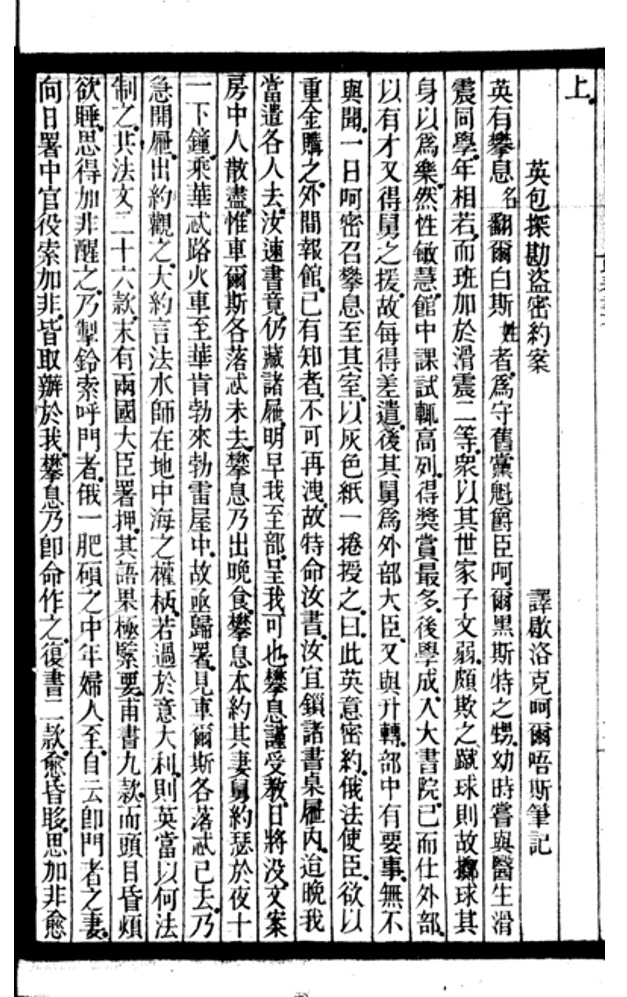 上
英包探勘盜密約案　譯歇洛克呵爾唔斯筆記
英有攀息名翻爾白斯姓者爲守舊黨魁爵臣呵爾黑斯特之甥幼時嘗與醫生滑
震同學年相若而班加於滑震二等衆以其世家子文弱頗欺之蹴球則故擲球其
身以爲樂然性敏慧館中課試輒高列得獎賞最多後學成入大書院已而仕外部
以有才又得舅之援故每得差遣後其舅爲外部大臣又與升轉部中有要事無不
與聞一日呵密召攀息至其室以灰色紙一捲授之曰此英意密約俄法使臣欲以
重金購之外間報館已有知者不可再洩故特命汝書汝宜鎖諸書桌屜內迨晚我
當遣各人去汝速書竟仍藏諸屜明早我至部呈我可也攀息謹受教日將没文案
房中人散盡惟車爾斯各落忒未去攀息乃出晚食攀息本約其妻舅約瑟於夜十
一下鐘乘華忒路火車至華肯勃來勃雷屋中故亟歸署見車爾斯各落忒已去乃
急開屜出約觀之大約言法水師在地中海之權柄若過於意大利則英當以何法
制之共法文二十六款末有兩國大臣署押其語果極緊要甫書九款而頭目昏煩
欲睡思得加非醒之乃掣鈴索呼門者俄一肥碩之中年婦人至自云卽門者之妻
向日署中官役索加非皆取辦於我攀息乃卽命作之復書二款愈昏眵思加非愈